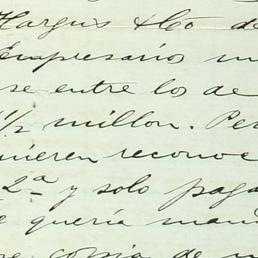 Hargus & Co de
Empresario
se entre los de
1/2 millon. Per
uieren reconoc
2ª y solo paga
queria man
copia de